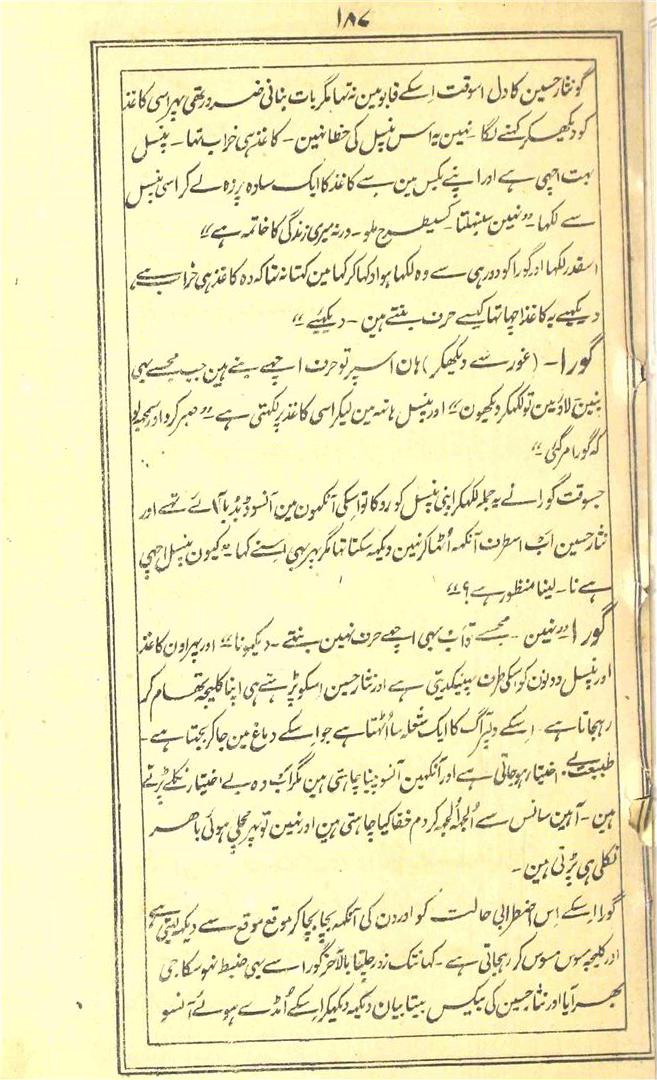 ۱۸۷
گو نثار حسین کا دل اسوقت اِسکے قابو مین نہ تہا مگر بات بنانی ضرور تھی پہر اسی کاغذ
کو دیکھکر کہنے لگا۔ نہین یہ اس پنسل کی خطا نہین۔ کاغذ ہی خراب تہا۔ پنسل
بہت اچہی ہے اور اپنے بکس مین سے کاغذ کا ایک سادہ پرزہ لے کر اسی پنسل
سے لکہا۔ ”نہین سنبہلتا۔ کسیطرح ملو۔ ورنہ میری زندگی کا خاتمہ ہے“
اسقدر لکہا اور گورا کو دور ہی سے وہ لکہا ہوا دکہا کر کہا مین کہتا نہ تہا کہ وہ کاغذ ہی خراب ہے،
دیکہیے یہ کاغذ اچہا تہا کیسے حرف بنتے ہین۔ دیکہئیے“
گورا۔ (غور سے دیکھکر) ہان اسپر تو حرف اچہے بنے ہین جب مجسے بہی
بنین لاؤ مین تو لکہکر دیکہون“ اور پنسل ہاتہہ مین لیکر اسی کاغذ پر لکہتی ہے۔ ”صبر کرو اور سمجہہ لو
کہ گورا مرگئی“
جسوقت گورا نے یہ جملہ لکہکر اپنی پنسل کو روکا تو اسکی آنکہون مین آنسو ڈبڈبا آئے تہے اور
نثار حسین اب اسطرف آنکہہ اُٹہا کر نہین دیکہہ سکتا تہا مگر پہر بہی اسنے کہا ”کیون پنسل اچہی
ہے نا۔ لینا منظور ہے؟“
گورا ”نہین۔ مجسے تو اب بہی اچہے حرف نہین بنتے۔ دیکہو نا“ اور پہر اون کاغذ
اور پنسل دونون کو اسکی طرف پہینکدیتی ہے اور نثار حسین اسکو پڑہتے ہی اپنا کلیجہ تہام کر
رہجاتا ہے۔ اِسکے دلپر آگ کا ایک شعلہ سا اُٹہتا ہے جو اِسکے دماغ مین جاکر بجہتا ہے۔
طبیعت بے اختیار ہو جاتی ہے اور آنکہین آنسو پینا چاہتی ہین مگر اب وہ بے اختیار نکلے پڑتے
ہین۔ آہین سانس سے اُلجہہ اُلجہہ کر دم خفا کیا چاہتی ہین اور نہین تو پہر مچلی ہوئی باہر
نکلی ہی پڑتی ہین۔
گورا اِسکے اِس اضطرابی حالت کو اور دن کی آنکہہ بچا بچا کر موقع موقع سے دیکہہ لیتی ہے
اور کلیجہ مسوس مسوس کر رہجاتی ہے۔ کہانتک زور چلتا بالآخر گورا سے بہی ضبط نہوسکا جی
بھر آیا اور نثار حسین کی بیکس بیتابیان دیکہہ دیکہکر اِسکے اُمنڈے ہوئے آنسو